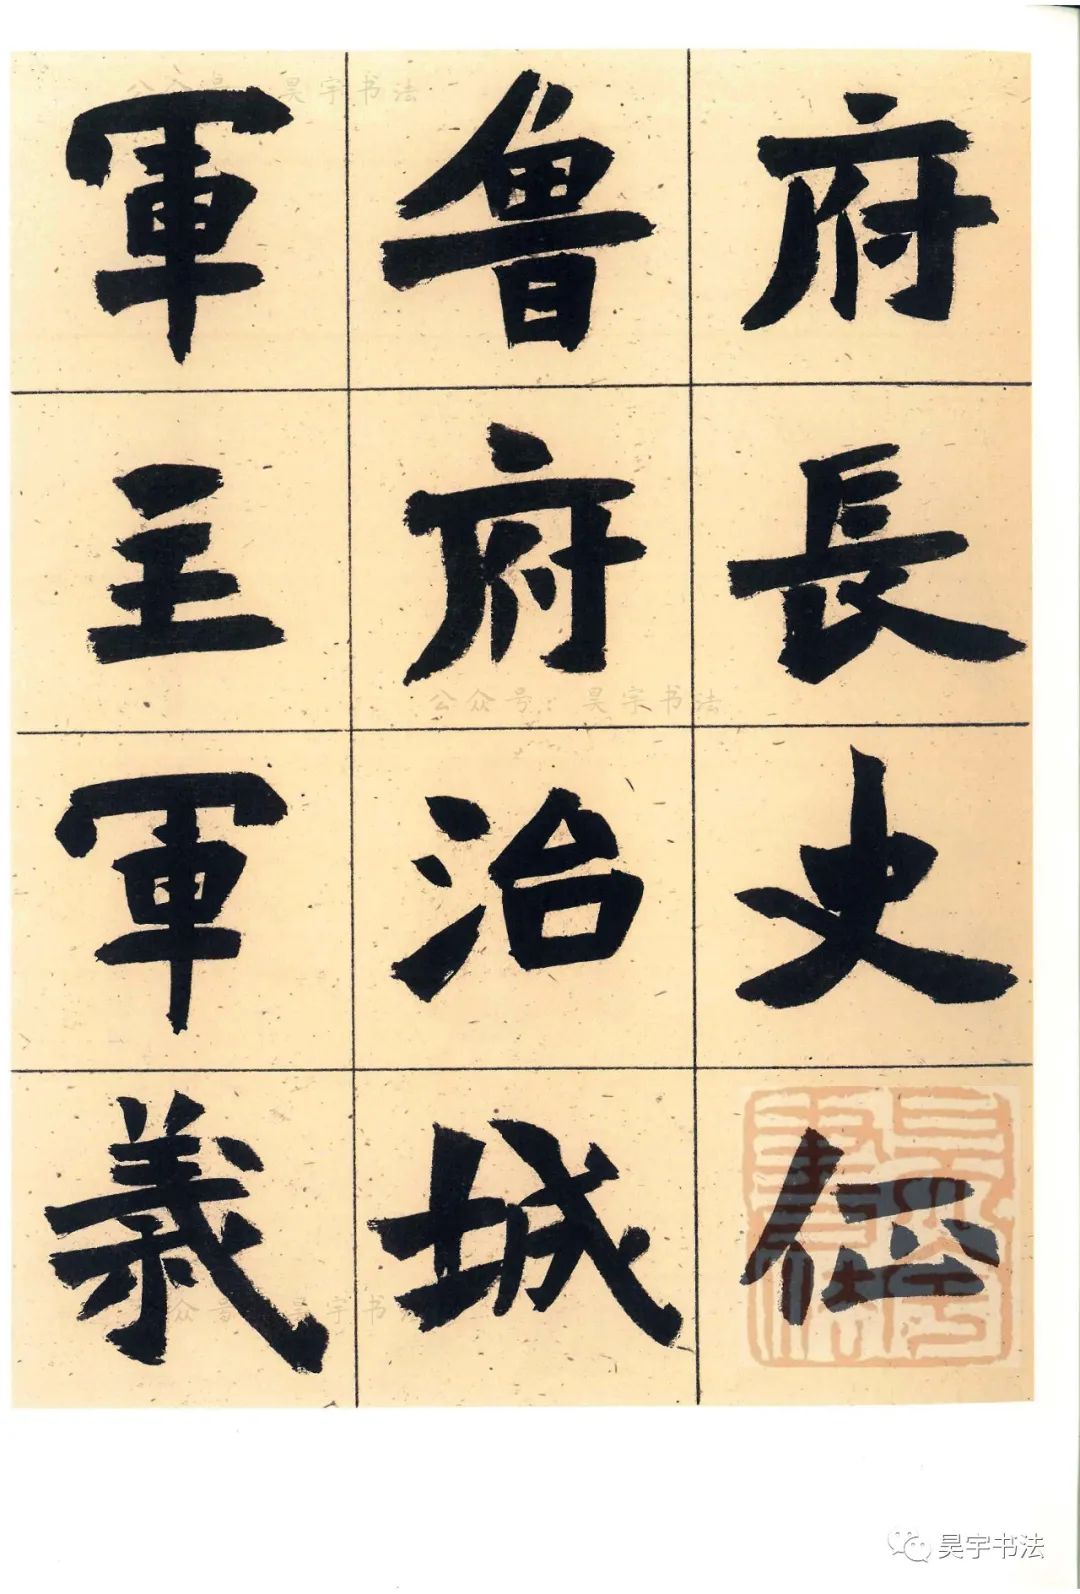 府長史任
魯府治城
軍主軍義
公众号：昊宇书法
公众号：昊宇书法
公众号：昊宇书法
昊宇书法